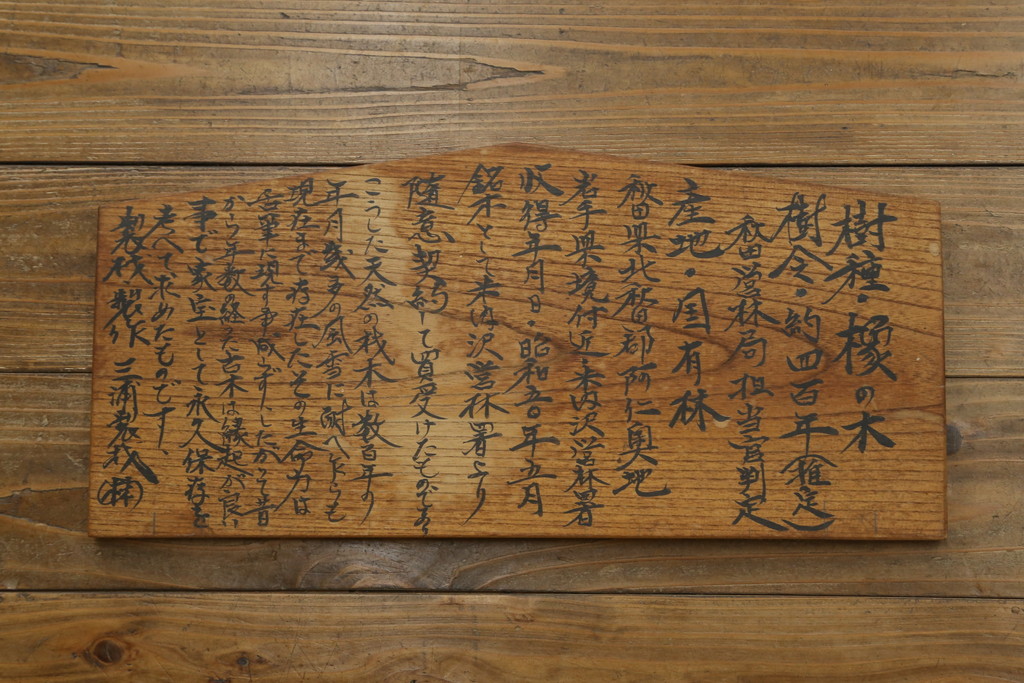 樹種・橡の木
樹令・約四百年(推定)
秋田営林局担当官判定
産地・国有林
秋田県北秋田郡阿仁奥地
岩手県境付近米内沢営林署
収得年月日・昭和五〇年五月
銘木として米内沢営林署より
随意契約して買受けたものであり
こうした天然の栈木は数百年の
年月幾多の風雪に耐へ乍らも
現在まで存在したその生命力は
舌筆に現す事成らず、したがって昔
から年数を経た古木は縁起が良い
事で家宝として永久保存を
考へて求めたものです、
製材製作 三浦製材(株)